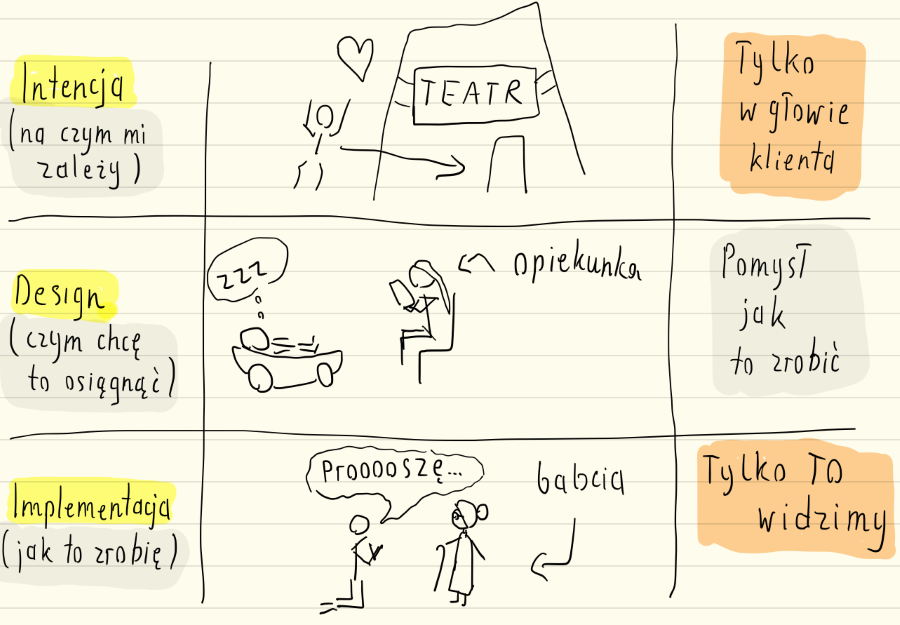 Intencja
(na czym mi
zależy)
TEATR
Tylko
w głowie
klienta
Design
(czym chcę
to osiągnąć)
zzz
opiekunka
Pomysł
jak
to zrobić
Implementacja
(jak to zrobię)
Prooooszę...
babcia
Tylko TO
widzimy